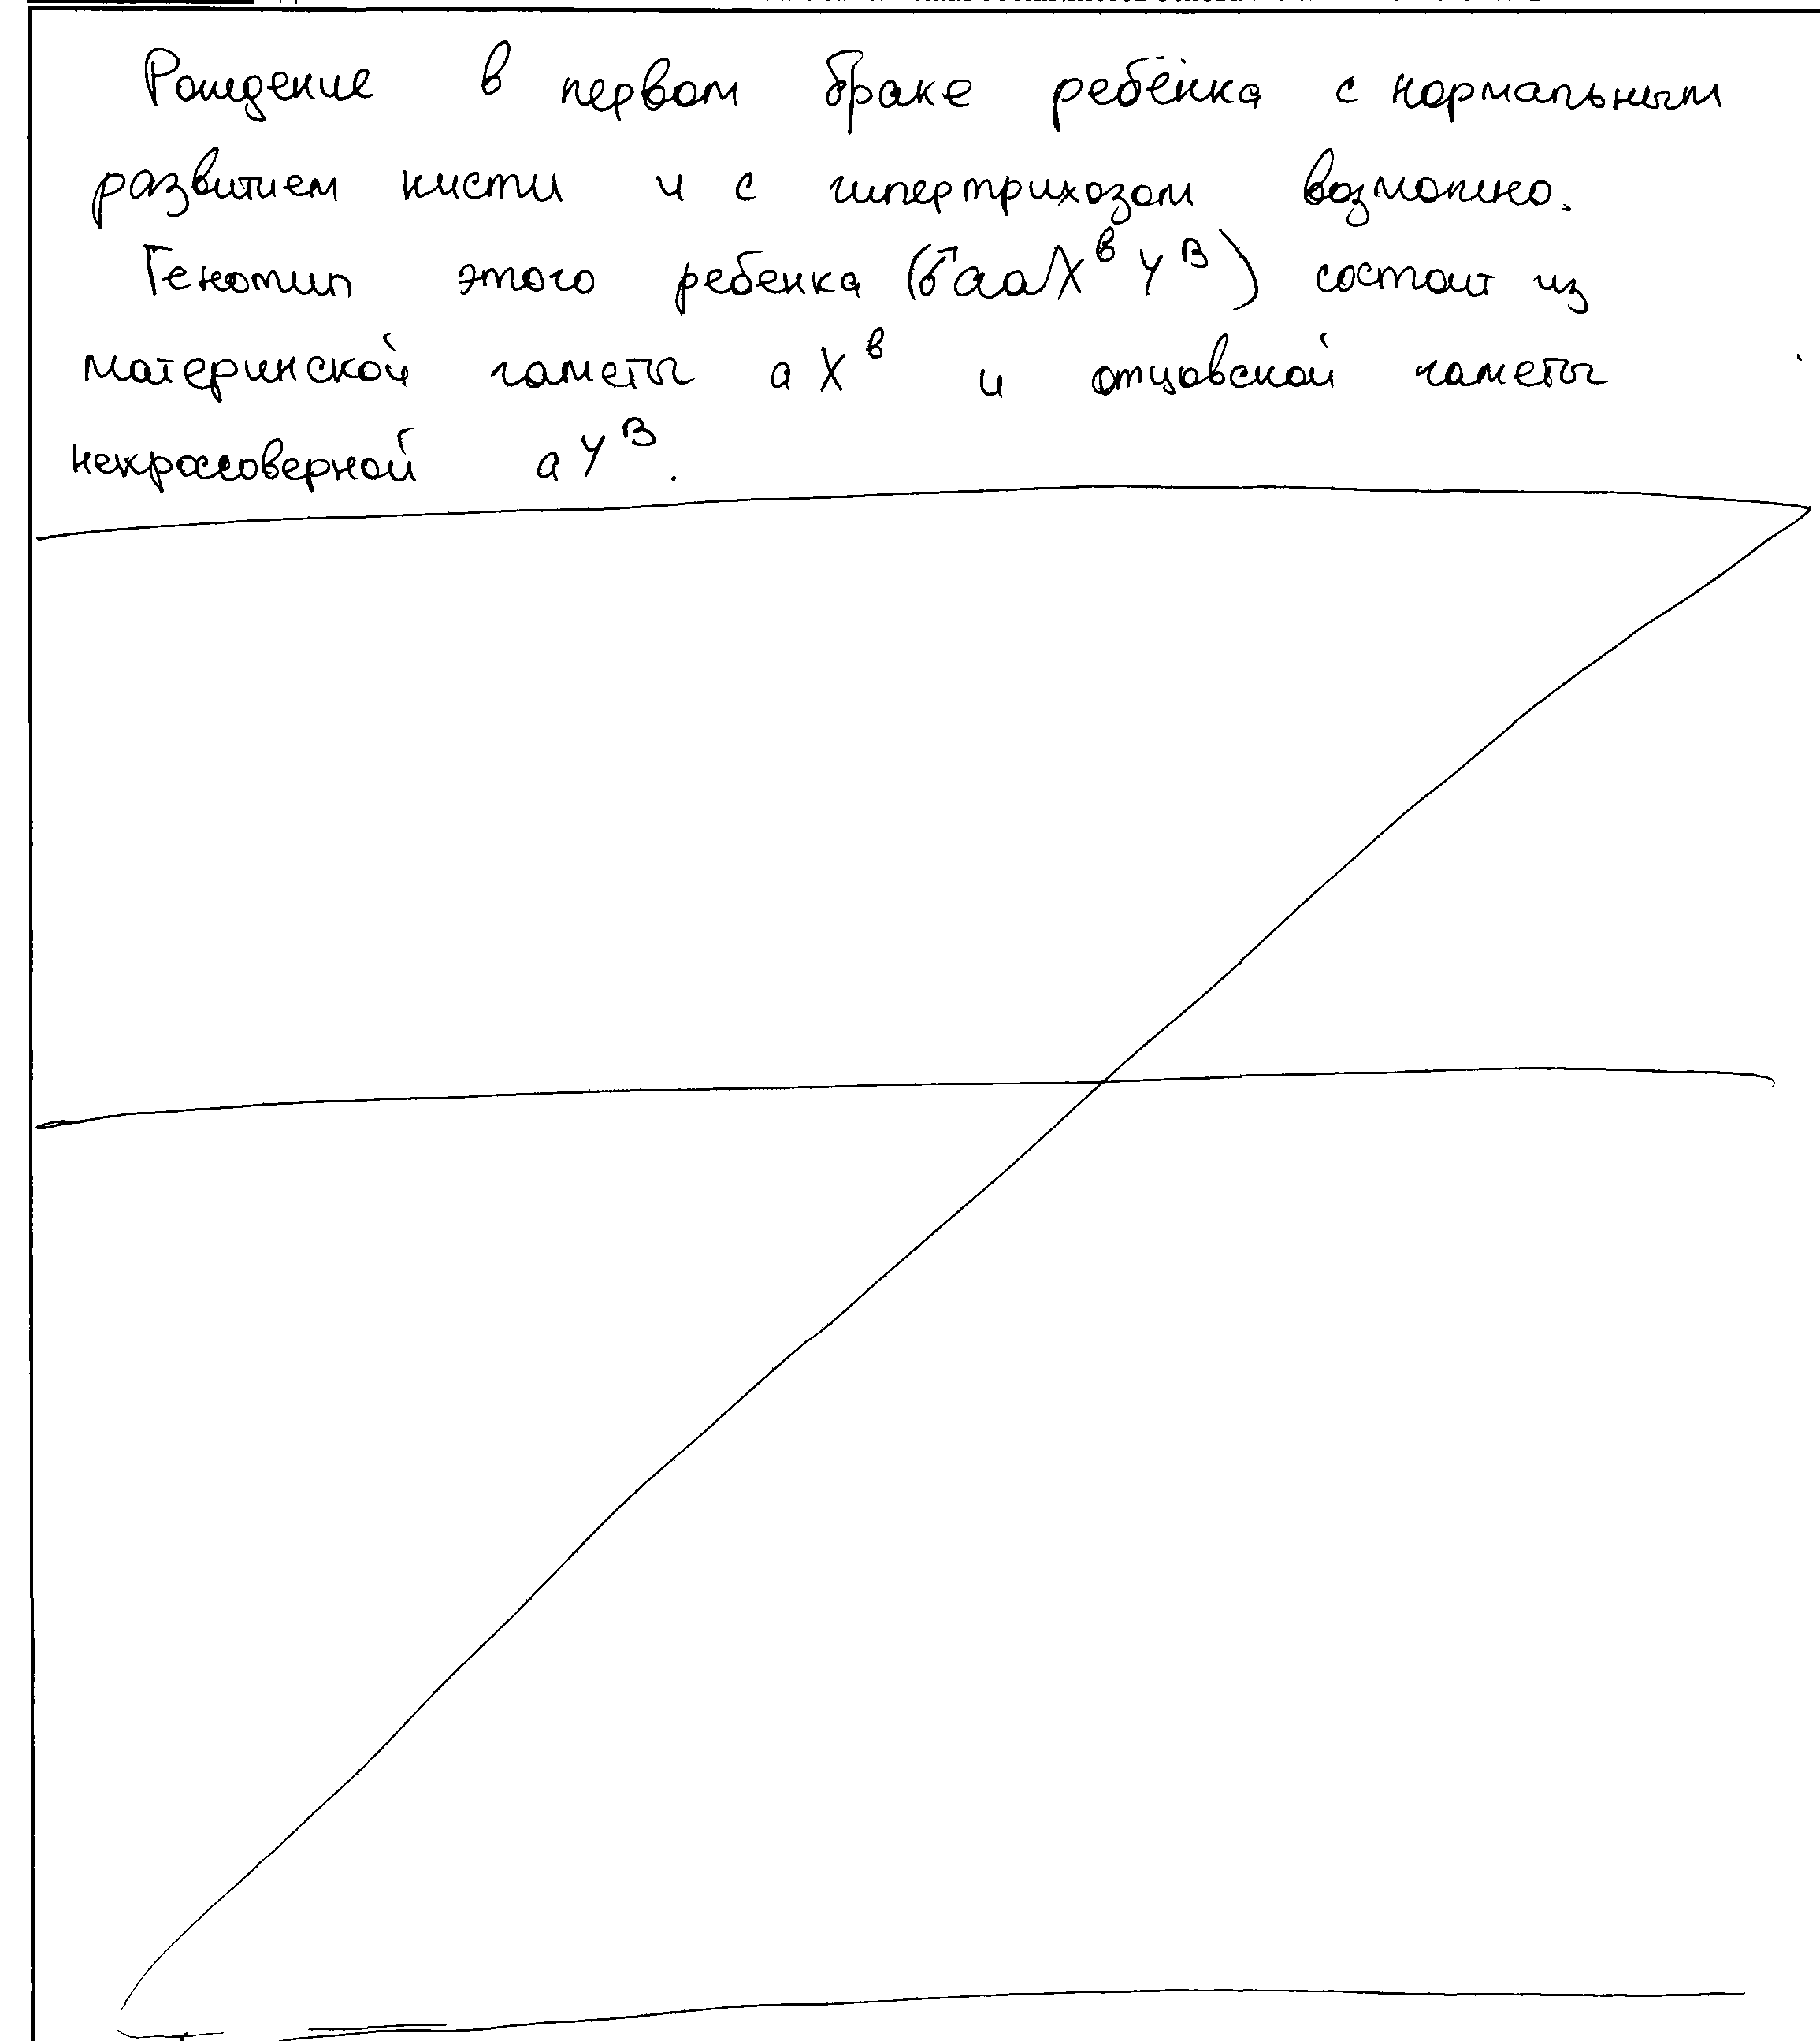 Рождение в первом браке ребёнка с нормальным
развитием кисти и с гипертрихозом возможно.
Генотип этого ребенка (♂aaXᵇYᴮ) состоит из
материнской гаметы aXᵇ и отцовской гаметы
некроссоверной aYᴮ.